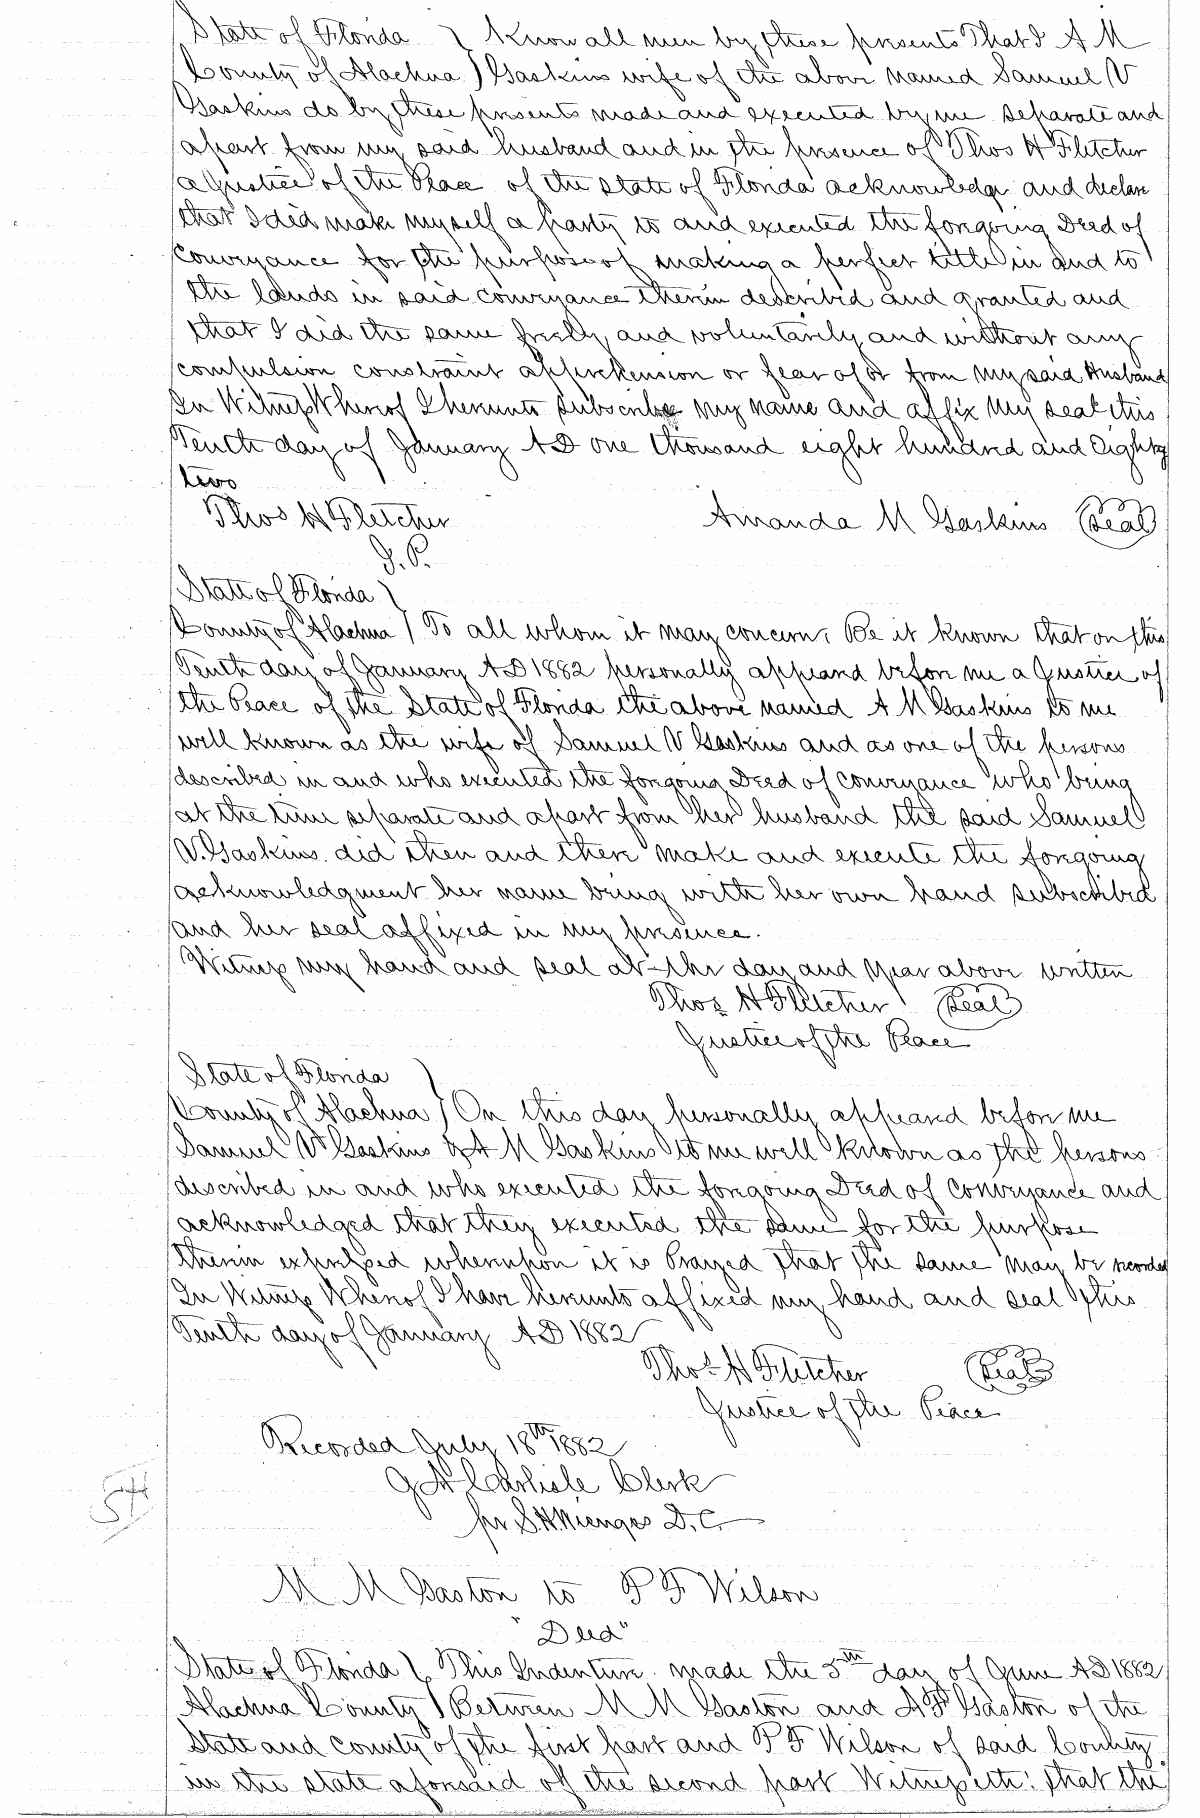 State of Florida } Know all men by these presents That I A M
County of Alachua } Gaskins wife of the above named Samuel V
Gaskins do by these presents made and executed by me separate and
apart from my said husband and in the presence of Thos H Fletcher
a Justice of the Peace of the state of Florida acknowledge and declare
that I did make myself a party to and executed the foregoing Deed of
Conveyance for the purpose of making a perfect tittle in and to
the lands in said conveyance therein described and granted and
that I did the same freely and voluntarily and without any
compulsion constraint apprehension or fear of or from my said Husband
In Witness Whereof I hereunto subscribe my name and affix my seal this
Tenth day of January AD one thousand eight hundred and Eighty
two
Thos H Fletcher Amanda M Gaskins Seal
J. P.
State of Florida }
County of Alachua } To all whom it may concern, Be it known that on this
Tenth day of January AD 1882 personally appeared before me a Justice of
the Peace of the State of Florida the above named A M Gaskins to me
well known as the wife of Samuel V Gaskins and as one of the persons
described in and who executed the foregoing Deed of Conveyance who being
at the time separate and apart from her husband the said Samuel
V. Gaskins did then and there make and execute the foregoing
acknowledgment her name being with her own hand subscribed
and her seal affixed in my presence.
Witness my hand and seal at the day and year above written
Thos H Fletcher Seal
Justice of the Peace
State of Florida }
County of Alachua } On this day personally appeared before me
Samuel V Gaskins & A M Gaskins to me well known as the persons
described in and who executed the foregoing Deed of Conveyance and
acknowledged that they executed the same for the purpose
therein expressed whereupon it is Prayed that the same may be recorded
In Witness Whereof I have hereunto affixed my hand and seal this
Tenth day of January AD 1882
Thos H Fletcher Seal
Justice of the Peace
Recorded July 18th 1882
J A Carlisle Clerk
pr S. H. Wienges D. C.
M M Gaston to P F Wilson
"Deed"
State of Florida } This Indenture made the 5th day of June AD 1882
Alachua County } Between M M Gaston and A F Gaston of the
State and county of the first part and P F Wilson of said County
in the state aforesaid of the second part Witnesseth: that the